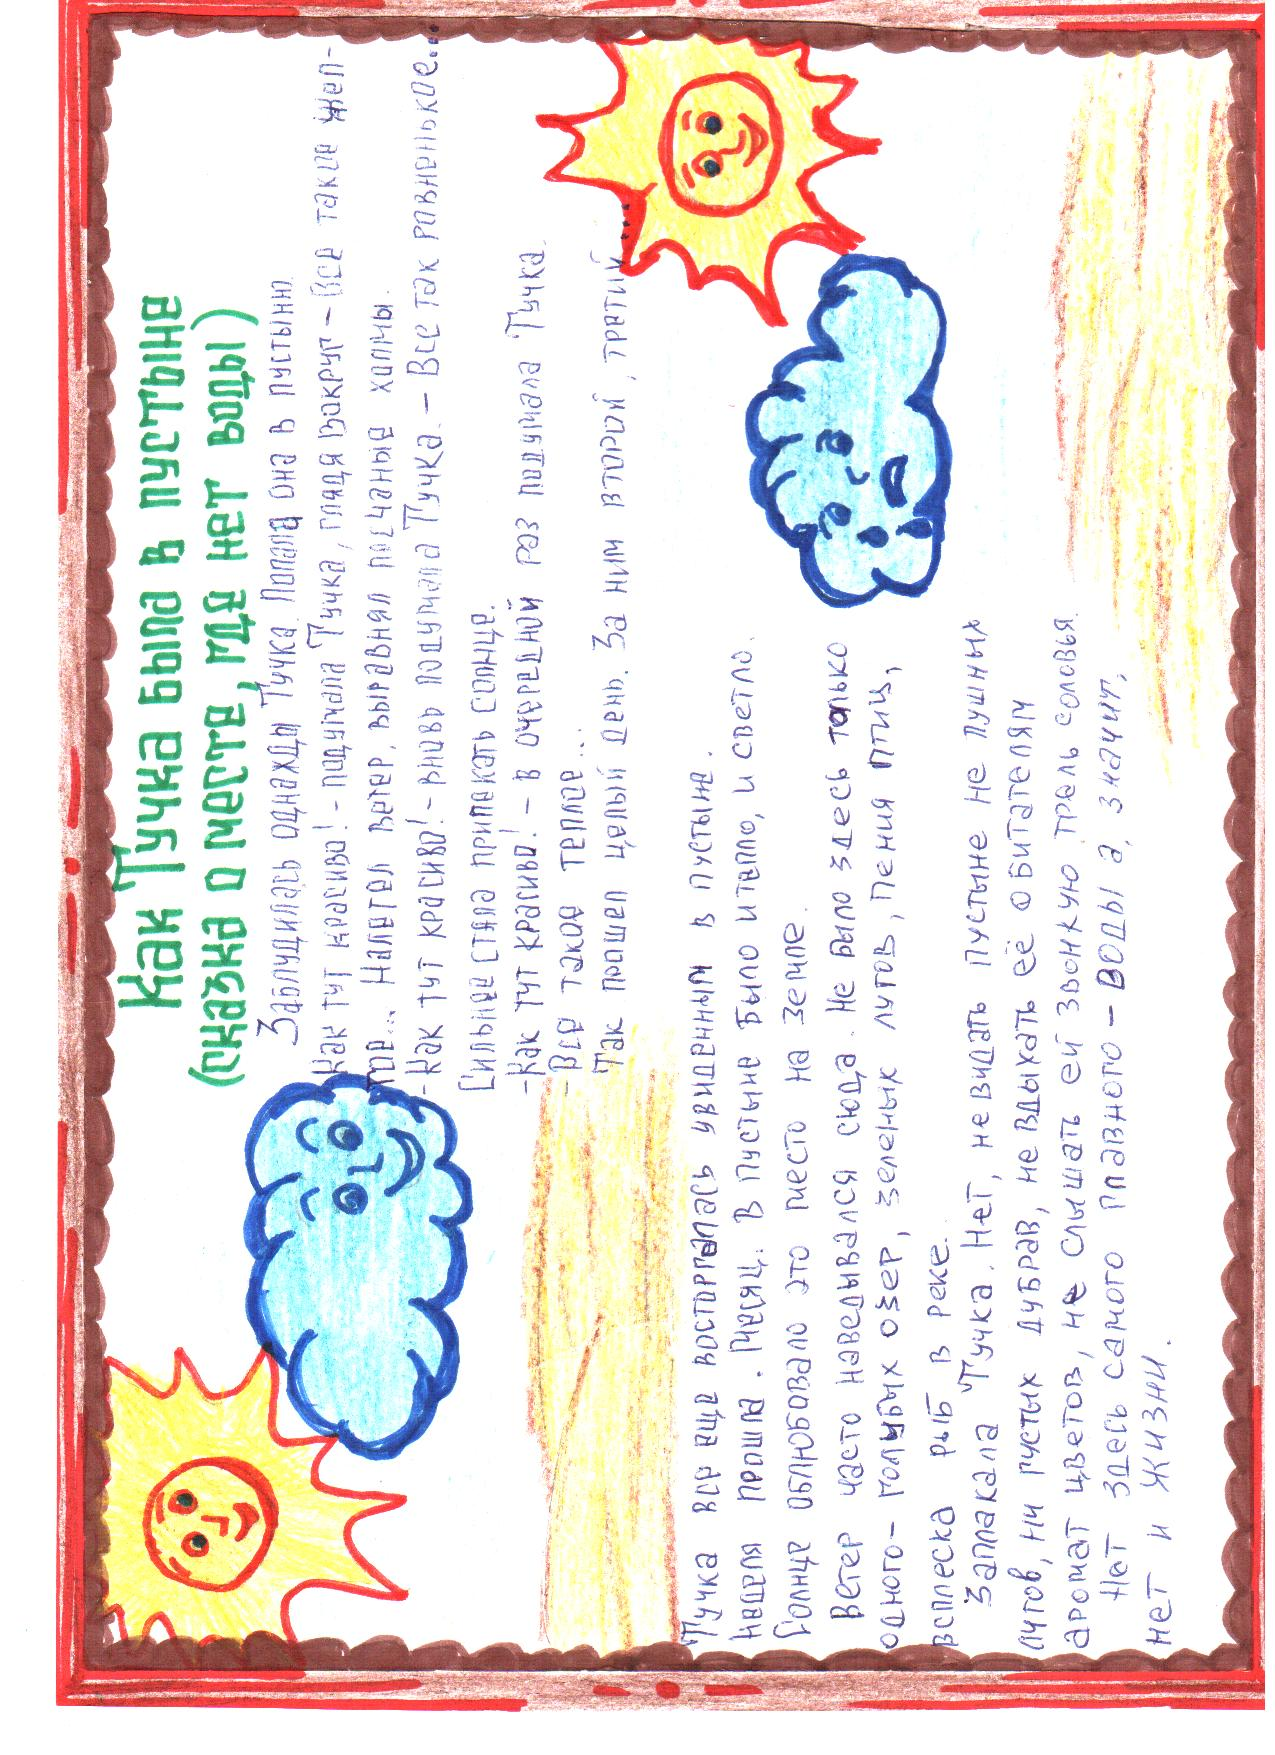 Как Тучка была в пустыне
(сказка о месте, где нет воды)
Заблудилась однажды Тучка. Попала она в пустыню.
Как тут красиво! - подумала Тучка, глядя вокруг - Все такие жел-
тое... Налетел ветер, выравнял песчаные холмы.
- Как тут красиво! - вновь подумала Тучка. - Все так ровненькое...
Сильнее стало припекать солнце.
- Как тут красиво! - в очередной раз подумала Тучка.
- Все такое теплое...
Так прошел целый день. За ним второй, третий....
Тучка все еще восторгалась увиденным в пустыне.
Неделя прошла. Месяц. В пустыне было и тепло, и светло.
Солнце облюбовало это место на земле.
Ветер часто наведывался сюда. Не было здесь только
одного - голубых озер, зеленых лугов, пения птиц,
всплеска рыб в реке.
Заплакала Тучка. Нет, не видать пустыне не пушных
лугов, ни густых дубрав, не вдыхать её обитателям
аромат цветов, не слышать ей звонкую трель соловья.
Нет здесь самого главного - ВОДЫ а, значит,
нет и ЖИЗНИ.